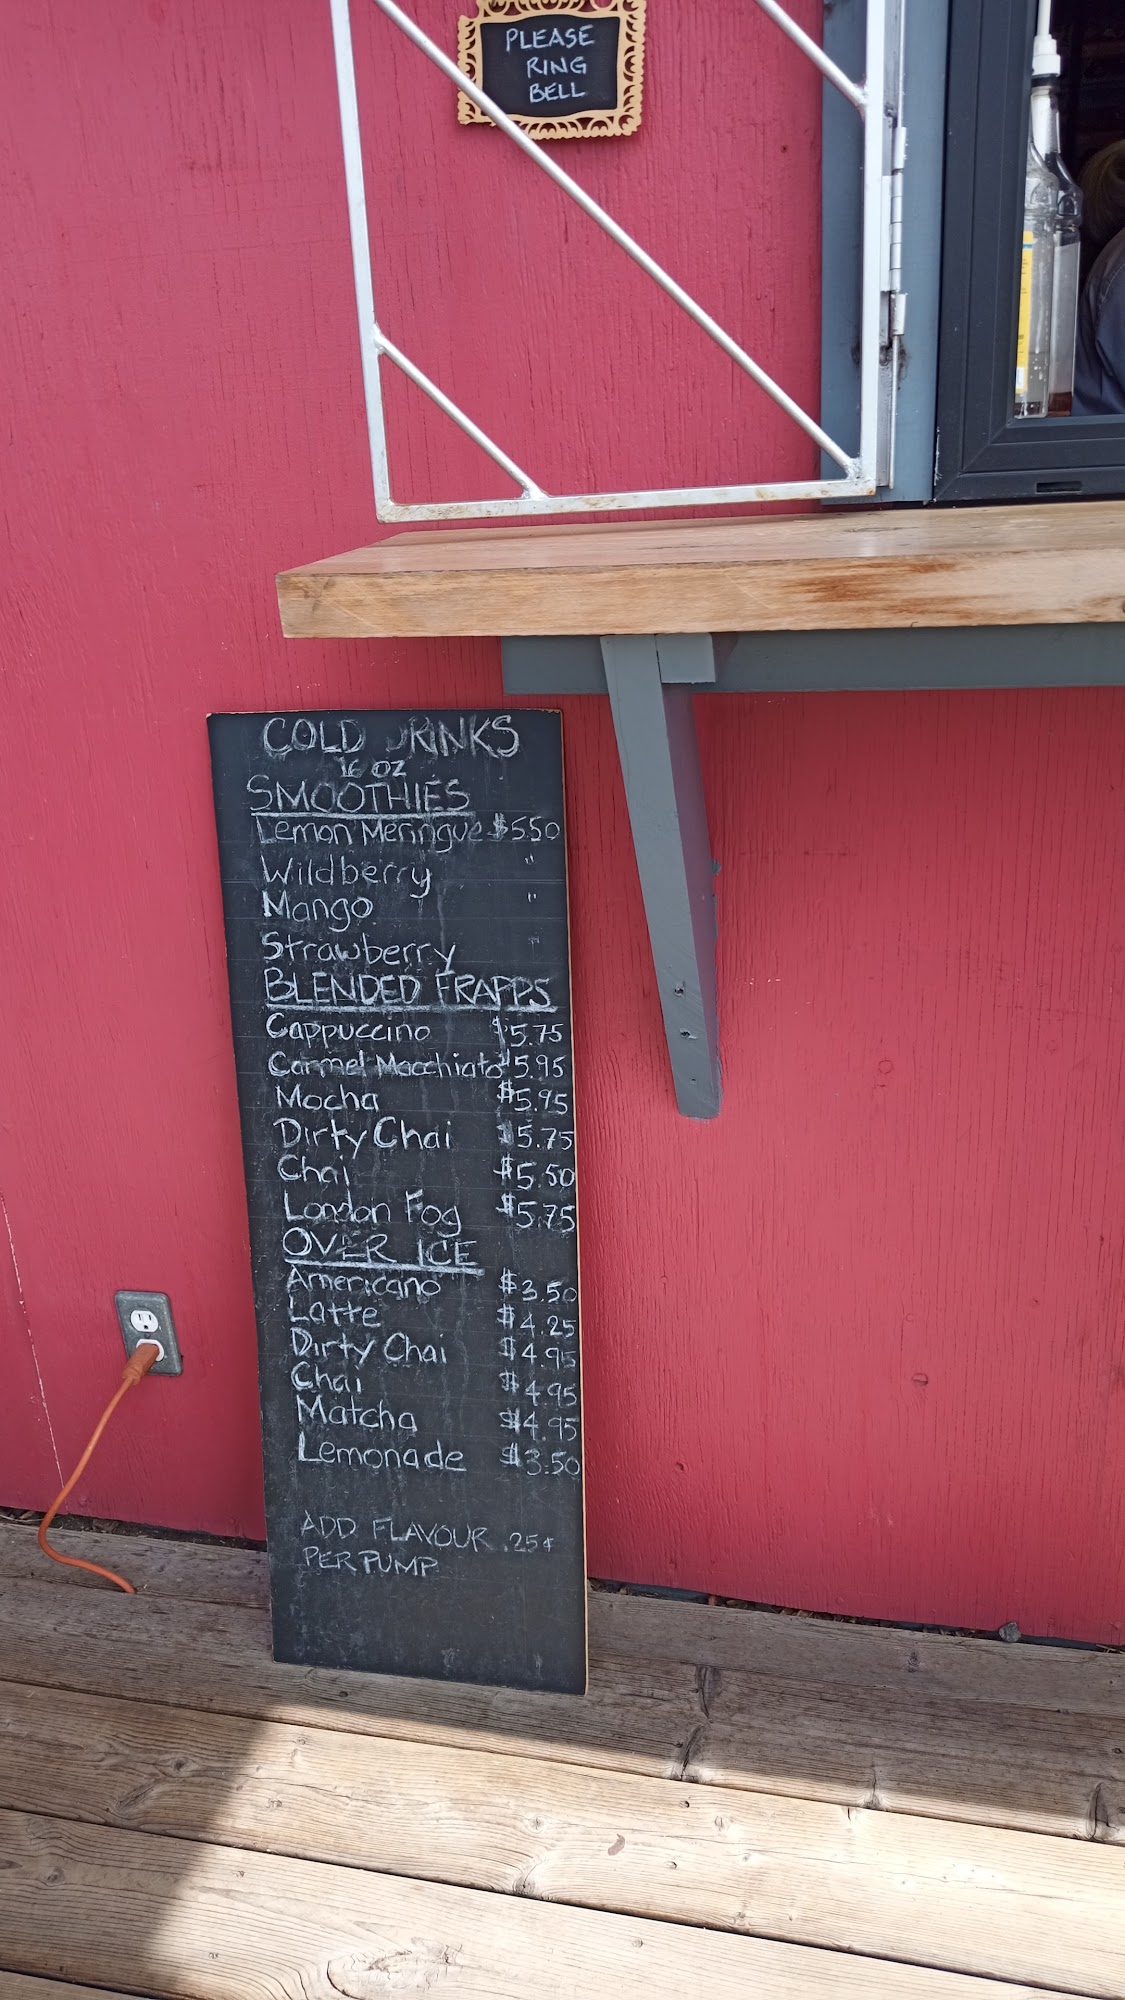 PLEASE
RING
BELL
COLD DRINKS
16 OZ
SMOOTHIES
Lemon Meringue $5.50
Wildberry "
Mango "
Strawberry "
BLENDED FRAPPS
Cappuccino $5.75
Carmel Macchiato $5.95
Mocha $5.95
Dirty Chai $5.75
Chai $5.50
London Fog $5.75
OVER ICE
Americano $3.50
Latte $4.25
Dirty Chai $4.95
Chai $4.95
Matcha $4.95
Lemonade $3.50
ADD FLAVOUR .25¢
PER PUMP